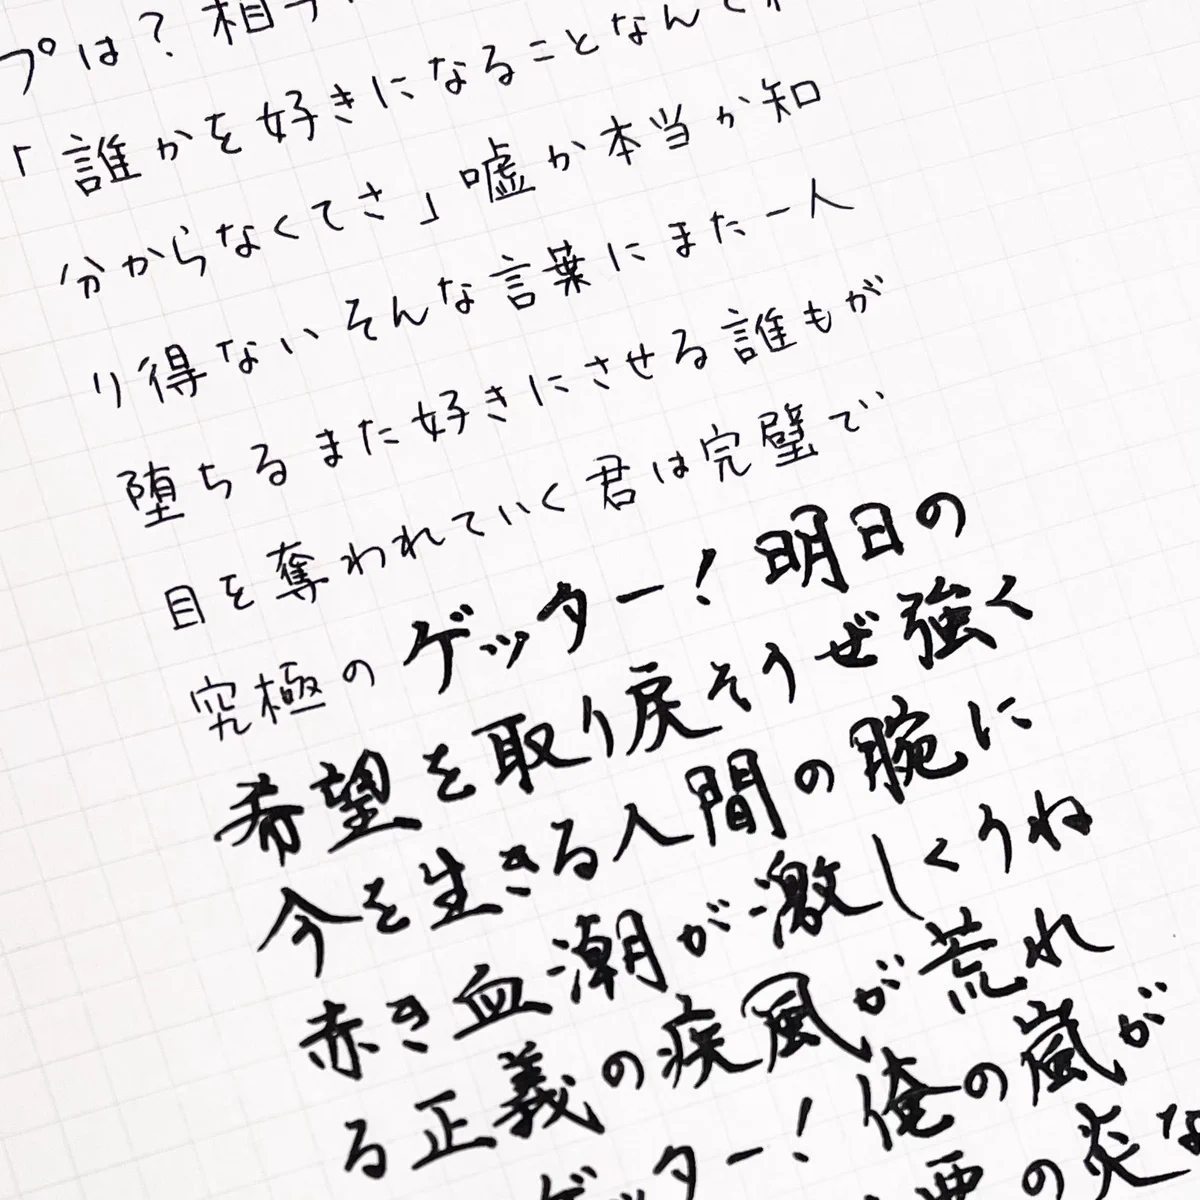 プは？相
「誰かを好きになることなんて
分からなくてさ」嘘か本当か知
り得ないそんな言葉にまた一人
堕ちるまた好きにさせる誰もが
目を奪われていく君は完璧で
究極のゲッター！明日の
希望を取り戻そうぜ強く
今を生きる人間の腕に
赤き血潮が激しくうね
る正義の疾風が荒れ
ゲッター！俺の嵐が
の炎な